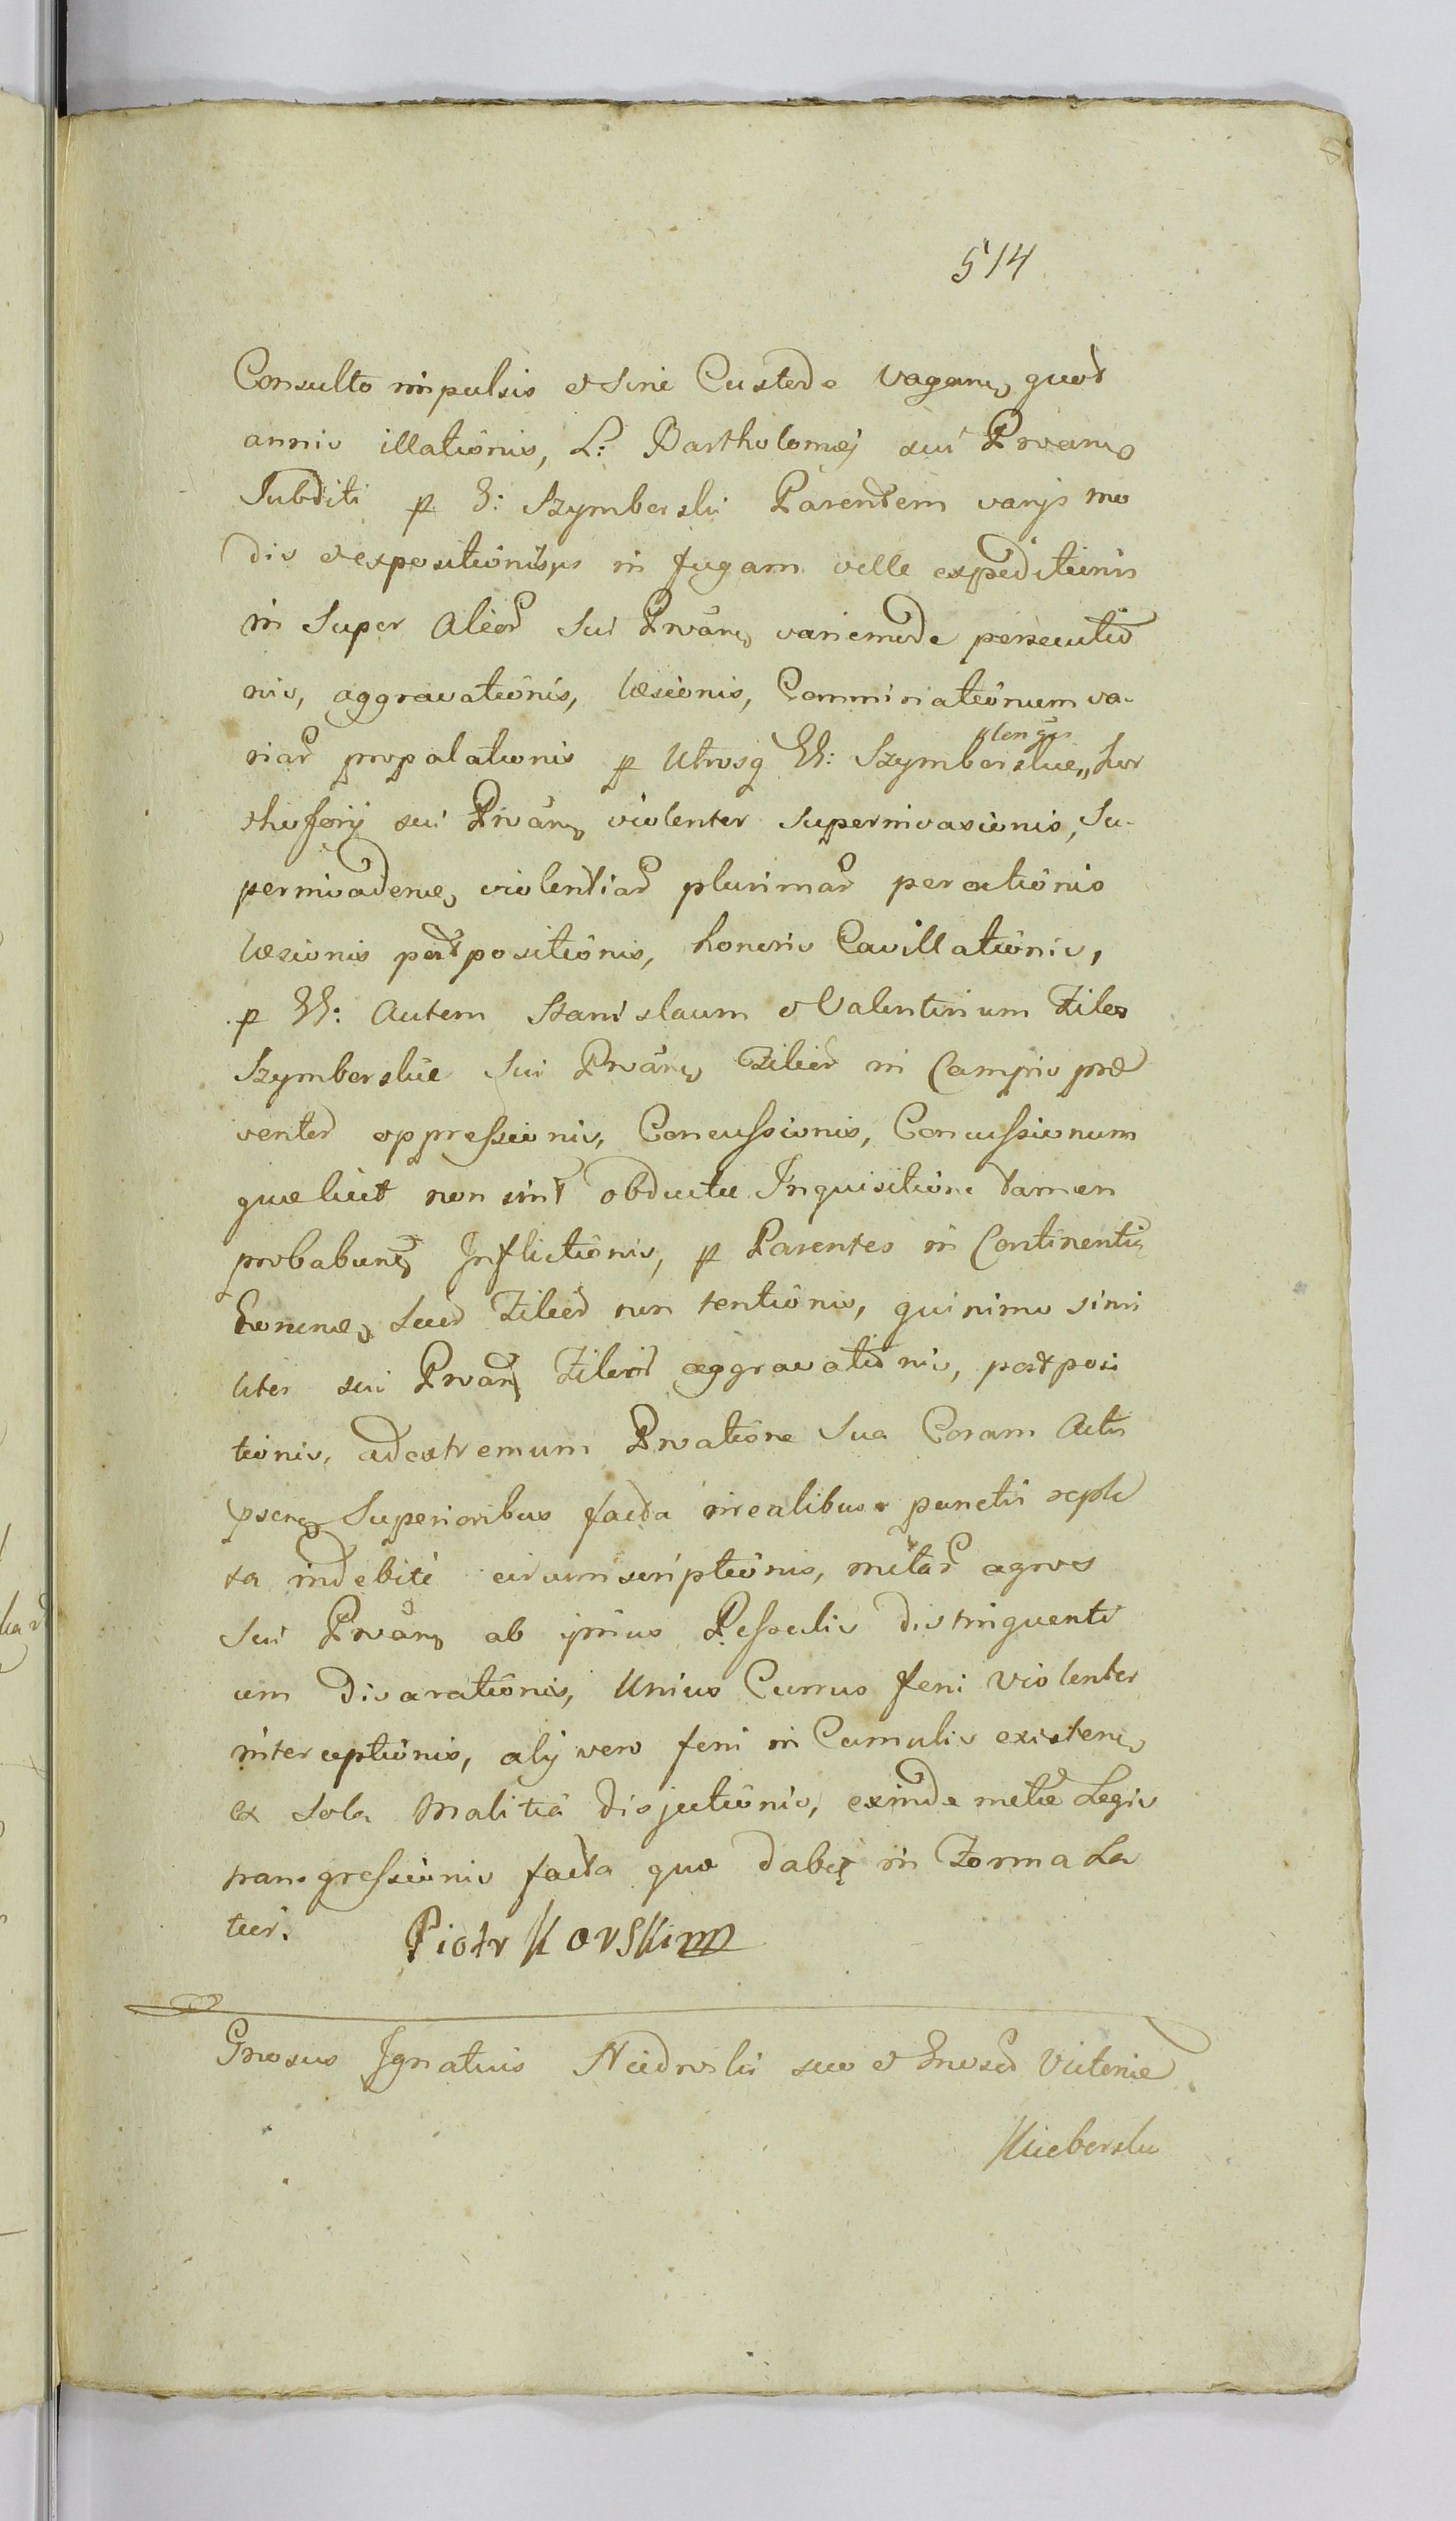 514
Consulto impulsis et sine Custode vagan, quot
annis illationis, L: Bartholomæj sui Prõtan,
Subditi p G: Szymberski Parentem varijs mo
dis et expositiõnibus in fugam velle expeditionis
in super aliõr sui Prõtan, variemode persecutio
nis, aggravatiõnis, læsionis, Comminatiõnum va-
riar propalationis p Utrosq GG: Szymberskie,, hor
thuforij sui Prõtan, violenter superinvasionis, Su-
perinvaden, violentiar plurimar peractiõnis
læsionis postpositiõnis, honoris Cavillatiõnis,
p GG: autem Stanislaum et Valentinum Filios
Szymberskie sui Prõtan, Filior in Campis præ
ventor oppressionis, Concussionis, Concussionum
quæ licet non sint obductæ Inquisitione tamen
probabunt Inflictiõnis, p Parentes in Continentia
suor Filior non tentiõnis, quinimo simi
liter sui Prõtan Filior aggravatiõnis, postposi
tionis, ad extremum Prõtatione Sua Coram Actis
psen Superioribus facta irrealibus punctis reple
ta indebite circumscriptiõnis, metar agros
sui Prõtan, ab ipsius Possessis distinguenti
um Disaratiõnis, Unius Currus feni violenter
interceptiõnis, alij vero feni in Cumulis existen,
ex sola Malitiâ disjectiõnis, exinde metæ Legis
transgressionis facta quo dabit in Forma La
tius.
Piotr Korski mp
Gnosus Ignatius Niedrwski suo et Gnosor Victoriæ
Kieberska